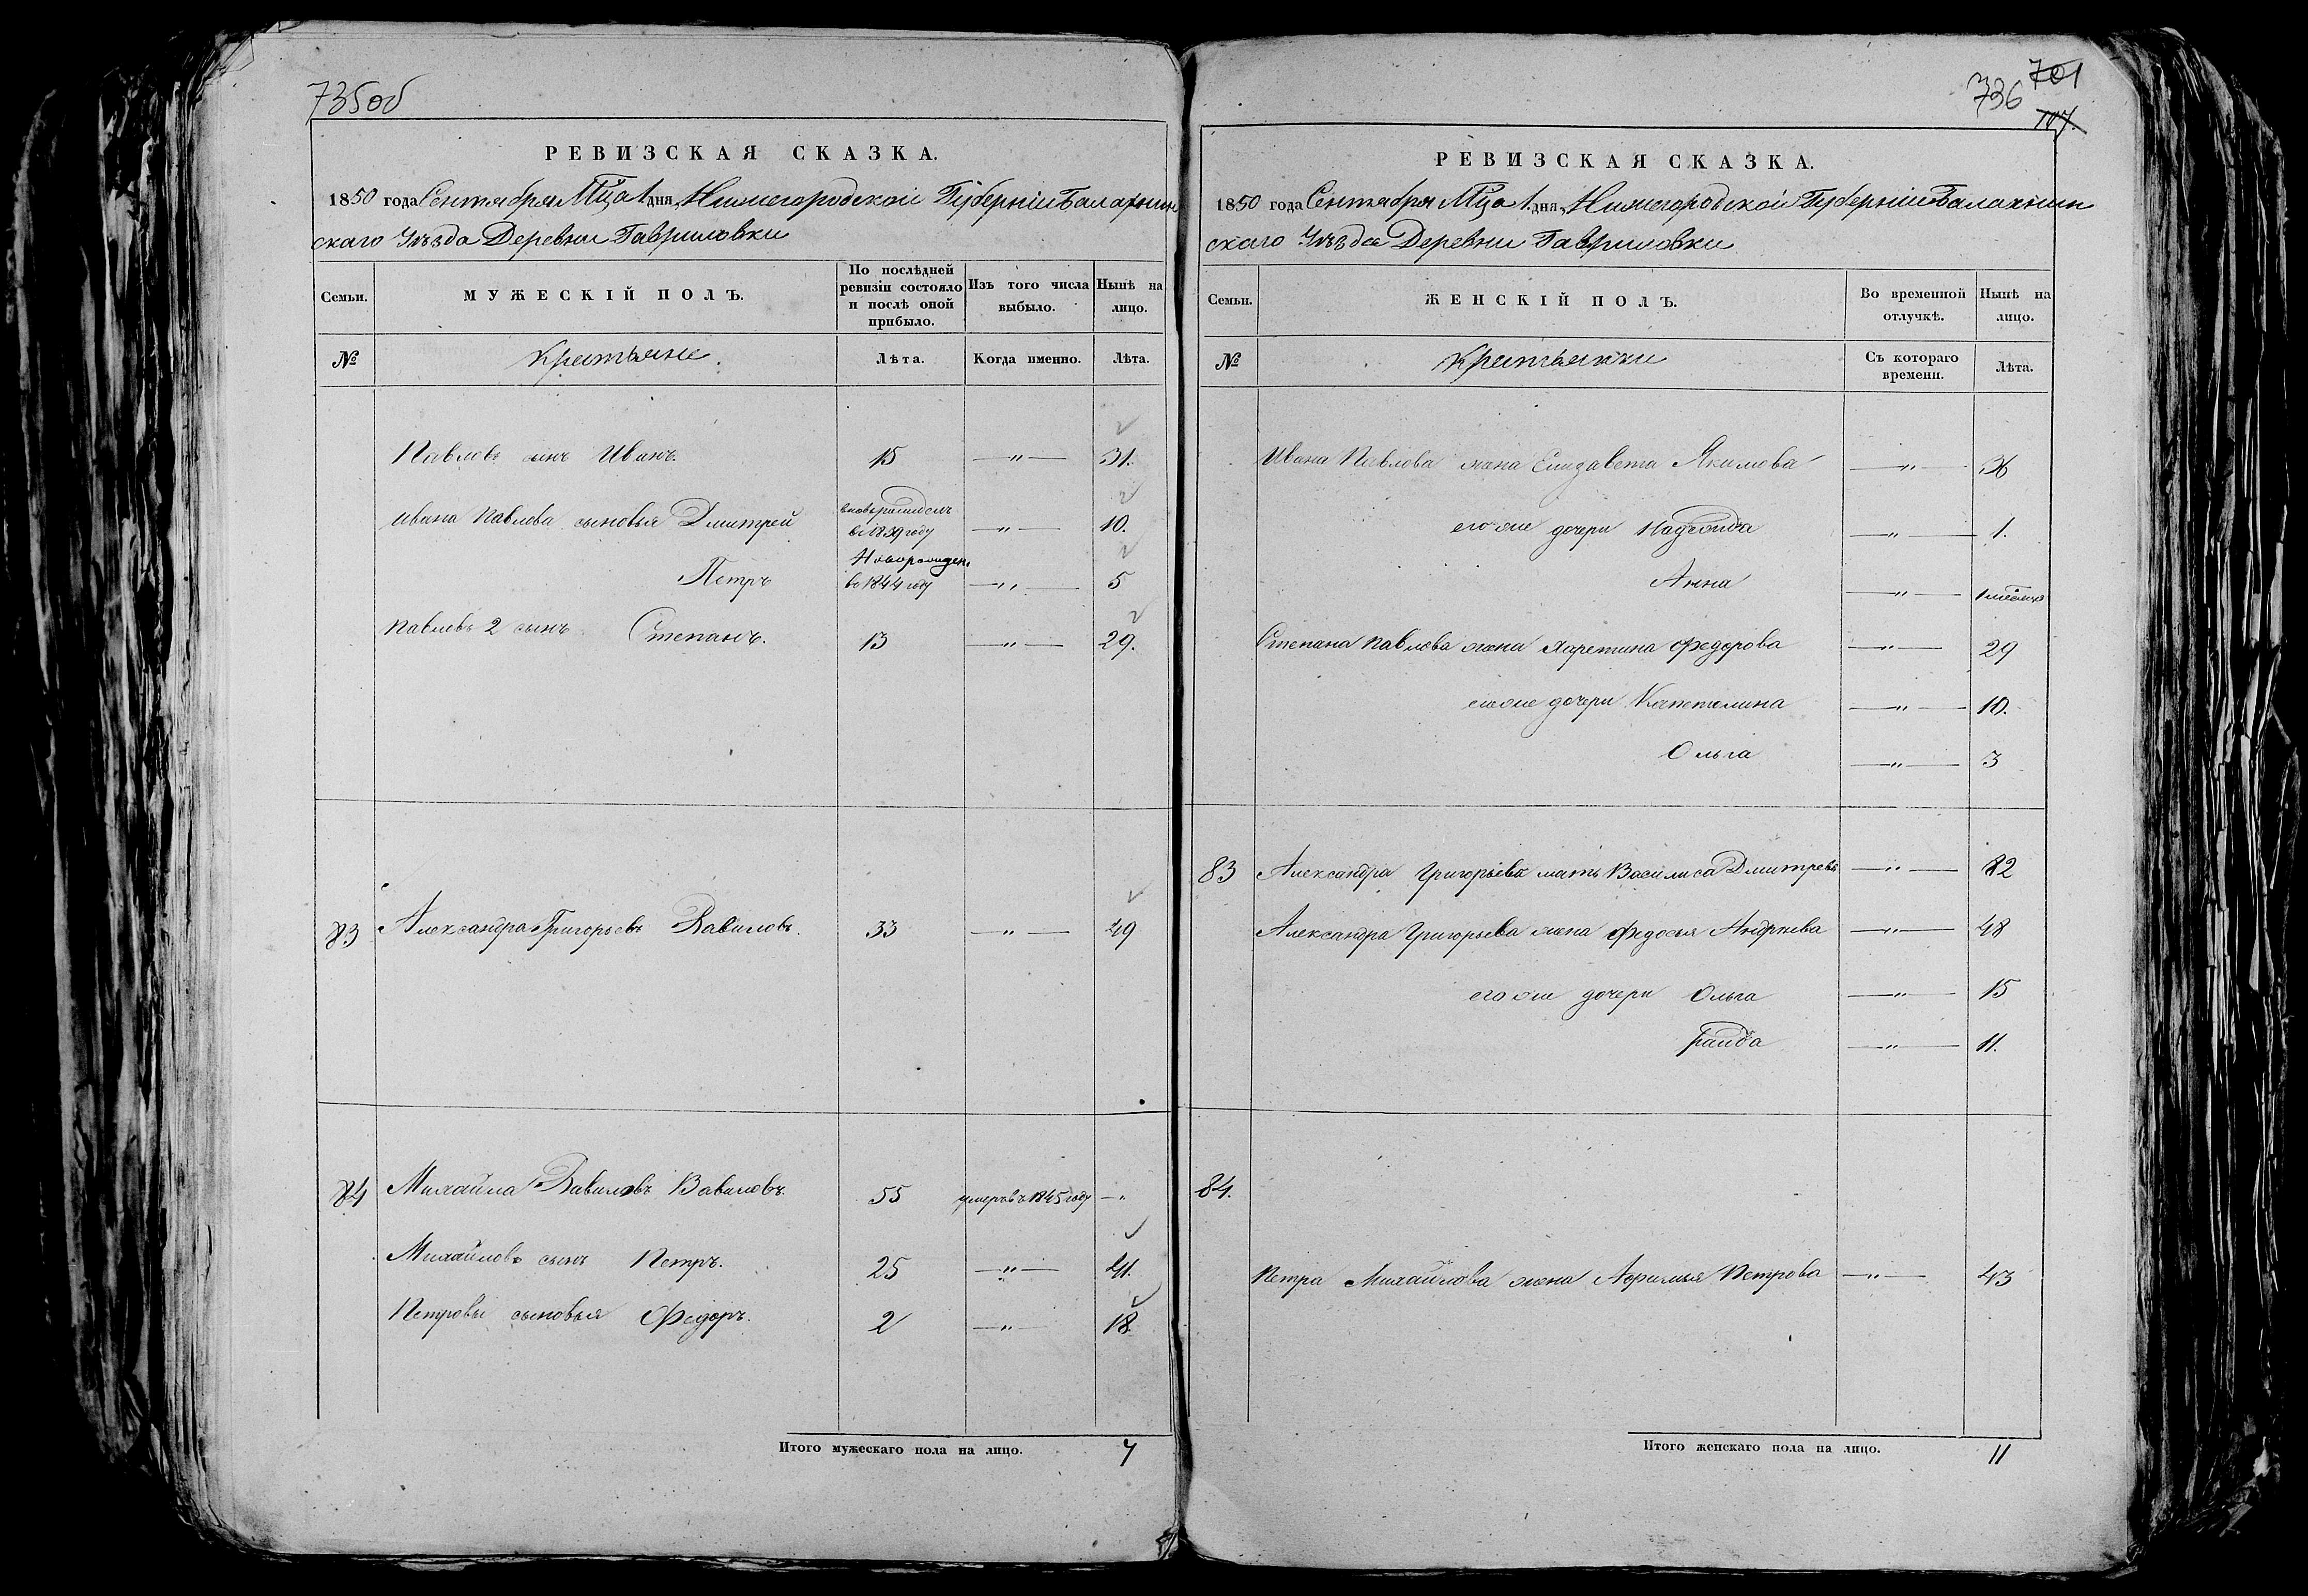 735об
РЕВИЗСКАЯ СКАЗКА.
1850 года Сентября Мца 1 дня, Нижегородской Губерніи Балахнин
скаго Уѣзда Деревни Гавриловки
Семьи.
МУЖЕСКІЙ ПОЛЪ.
По послѣдней ревизіи состояло и послѣ оной прибыло.
Изъ того числа выбыло.
Нынѣ на лицо.
№
Крестьяне.
Лѣта.
Когда именно.
Лѣта.
Павловъ сынъ Иванъ. 15 —„— 31.
Ивана Павлова сыновья Дмитрей въ 1839 году —„— 10.
Петръ Новорожден. въ 1844 году —„— 5
Павловъ 2 сынъ Степанъ. 13 —„— 29.
83 Александра Григорьевъ Вавиловъ. 33 —„— 49
84 Михайла Вавиловъ Вавиловъ. 55 умеръ въ 1845 году —„
Михайловъ сынъ Петръ. 25 —„— 41.
Петровы сыновья Федоръ. 2 —„— 18.
Итого мужескаго пола на лицо. 7
736 701
707.
РЕВИЗСКАЯ СКАЗКА.
1850 года Сентября Мца 1. дня, Нижегородской Губерніи Балахнин
скаго Уѣзда Деревни Гавриловки
Семьи.
ЖЕНСКІЙ ПОЛЪ.
Во временной отлучкѣ.
Нынѣ на лицо.
№
Крестьянки
Съ котораго времени.
Лѣта.
Ивана Павлова жена Елизавета Якимова —„— 36
его же дочери Надежда —„— 1.
Анна —„— 1 месяца
Степана Павлова жена Харетина Федорова —„— 29
его же дочери Капетолина —„— 10.
Ольга —„— 3
83 Александра Григорьева мать Василиса Дмитрева —„— 82
Александра Григорьева жена Федосья Андреева —„— 48
его же дочери Ольга —„— 15
Раида —„— 11.
84.
Петра Михайлова жена Афимья Петрова —„— 43
Итого женскаго пола на лицо. 11